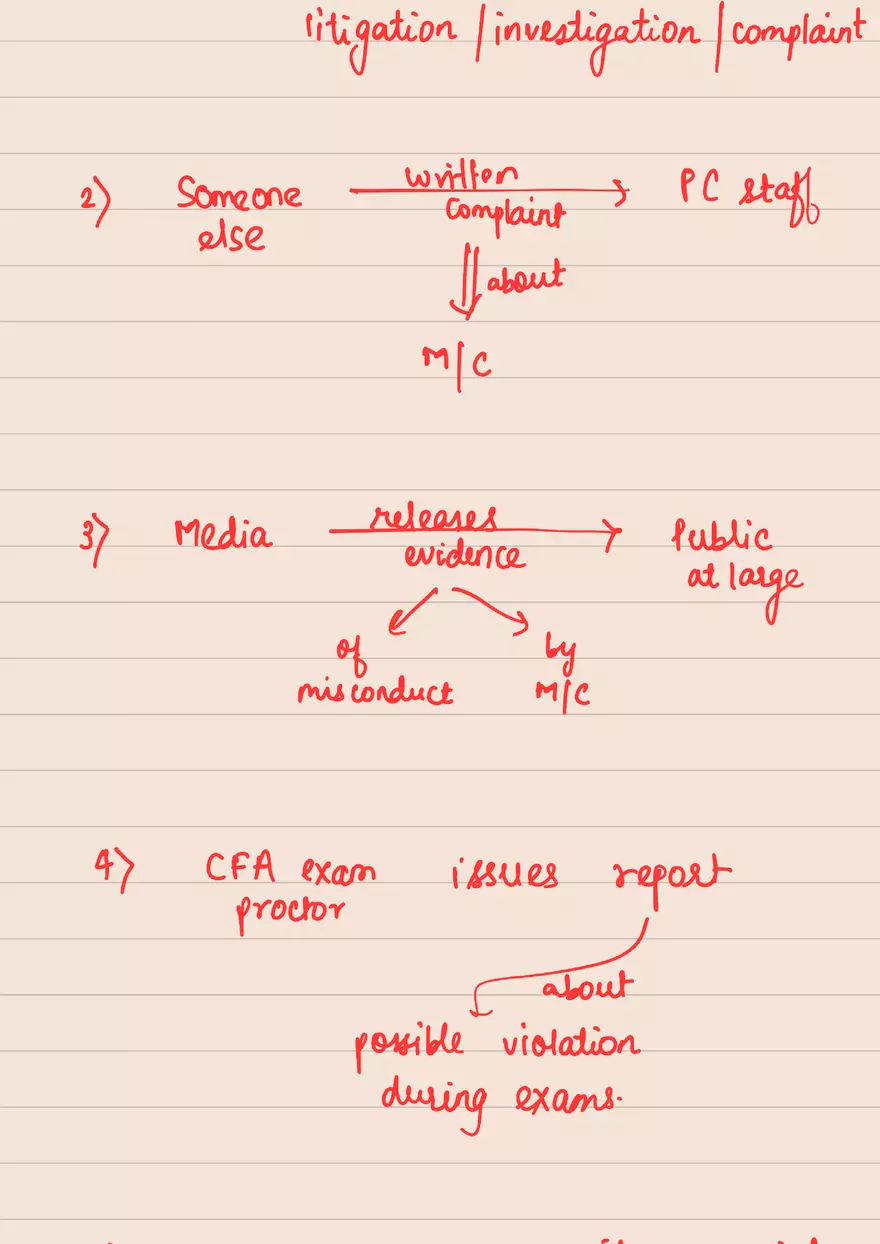 litigation / investigation / complaint
2) Someone else written complaint PC staff
about
M/C
3) Media releases evidence Public at large
of misconduct by M/C
4) CFA exam proctor issues report
about
possible violation
during exams.